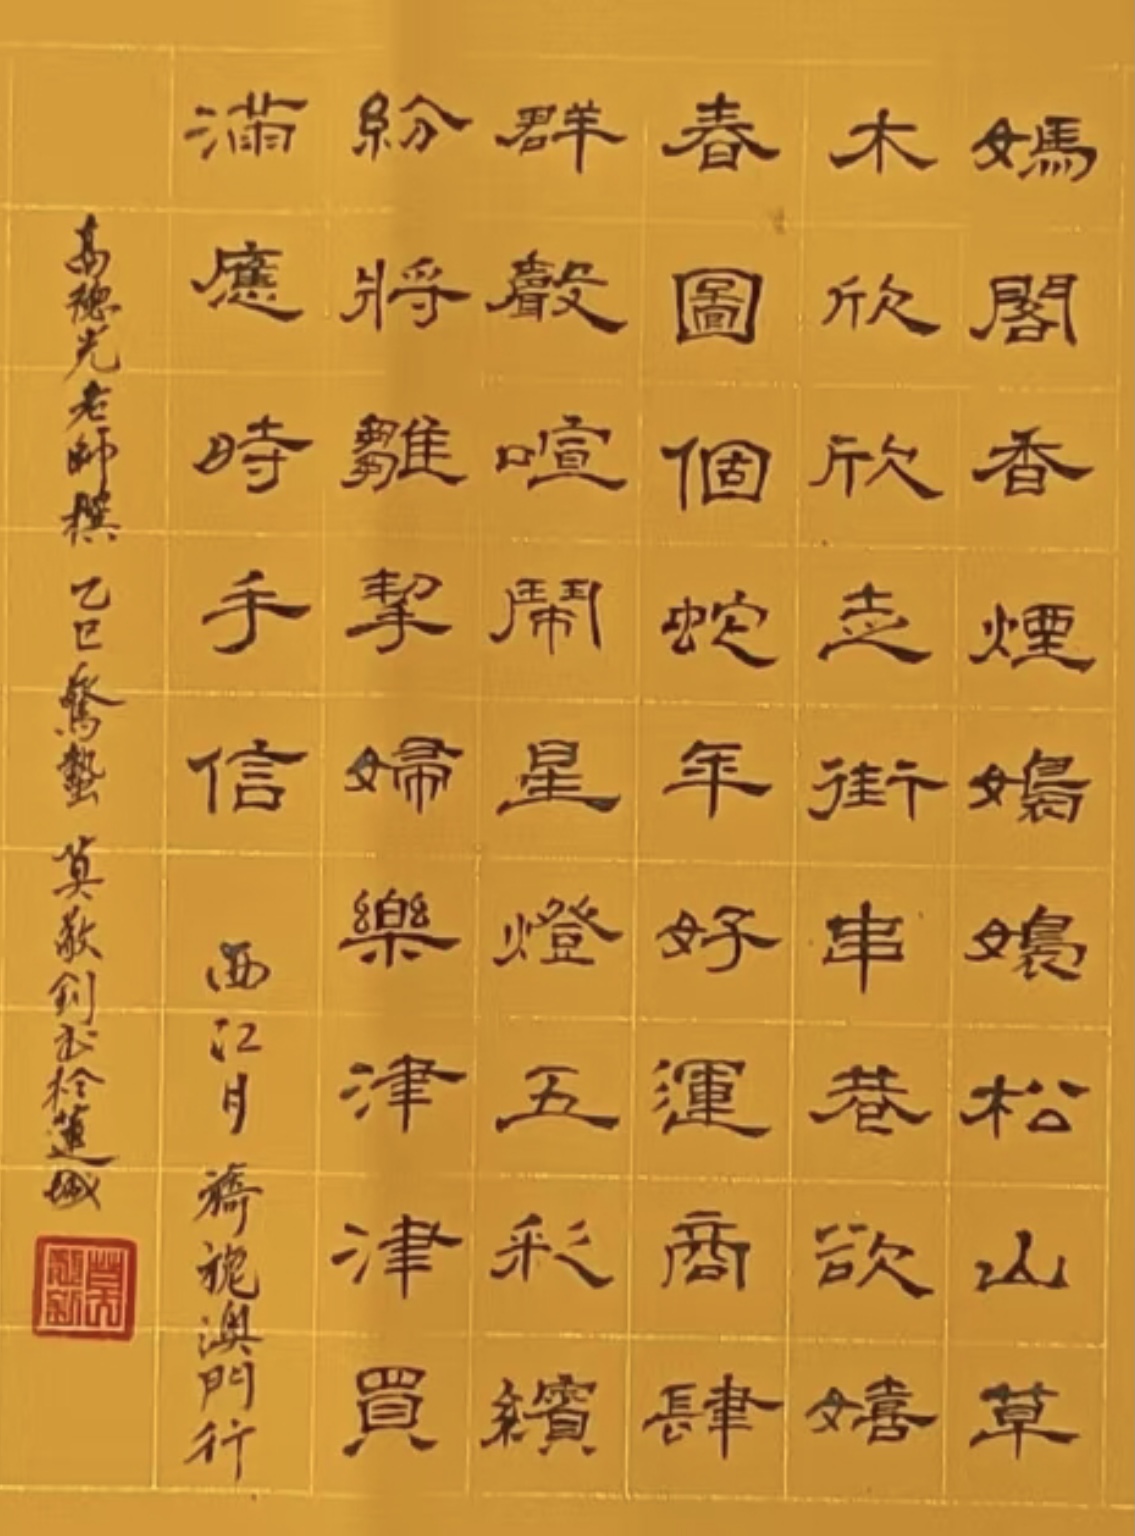 媽閣香煙嬝嬝松山草
木欣欣走街串巷欲嬉
春圖個蛇年好運商肆
群聲喧鬧星燈五彩繽
紛將雛挈婦樂津津買
滿應時手信 西江月 旖旎澳門行
高德光老師撰 乙巳驚蟄 莫敬釗書於蓮城